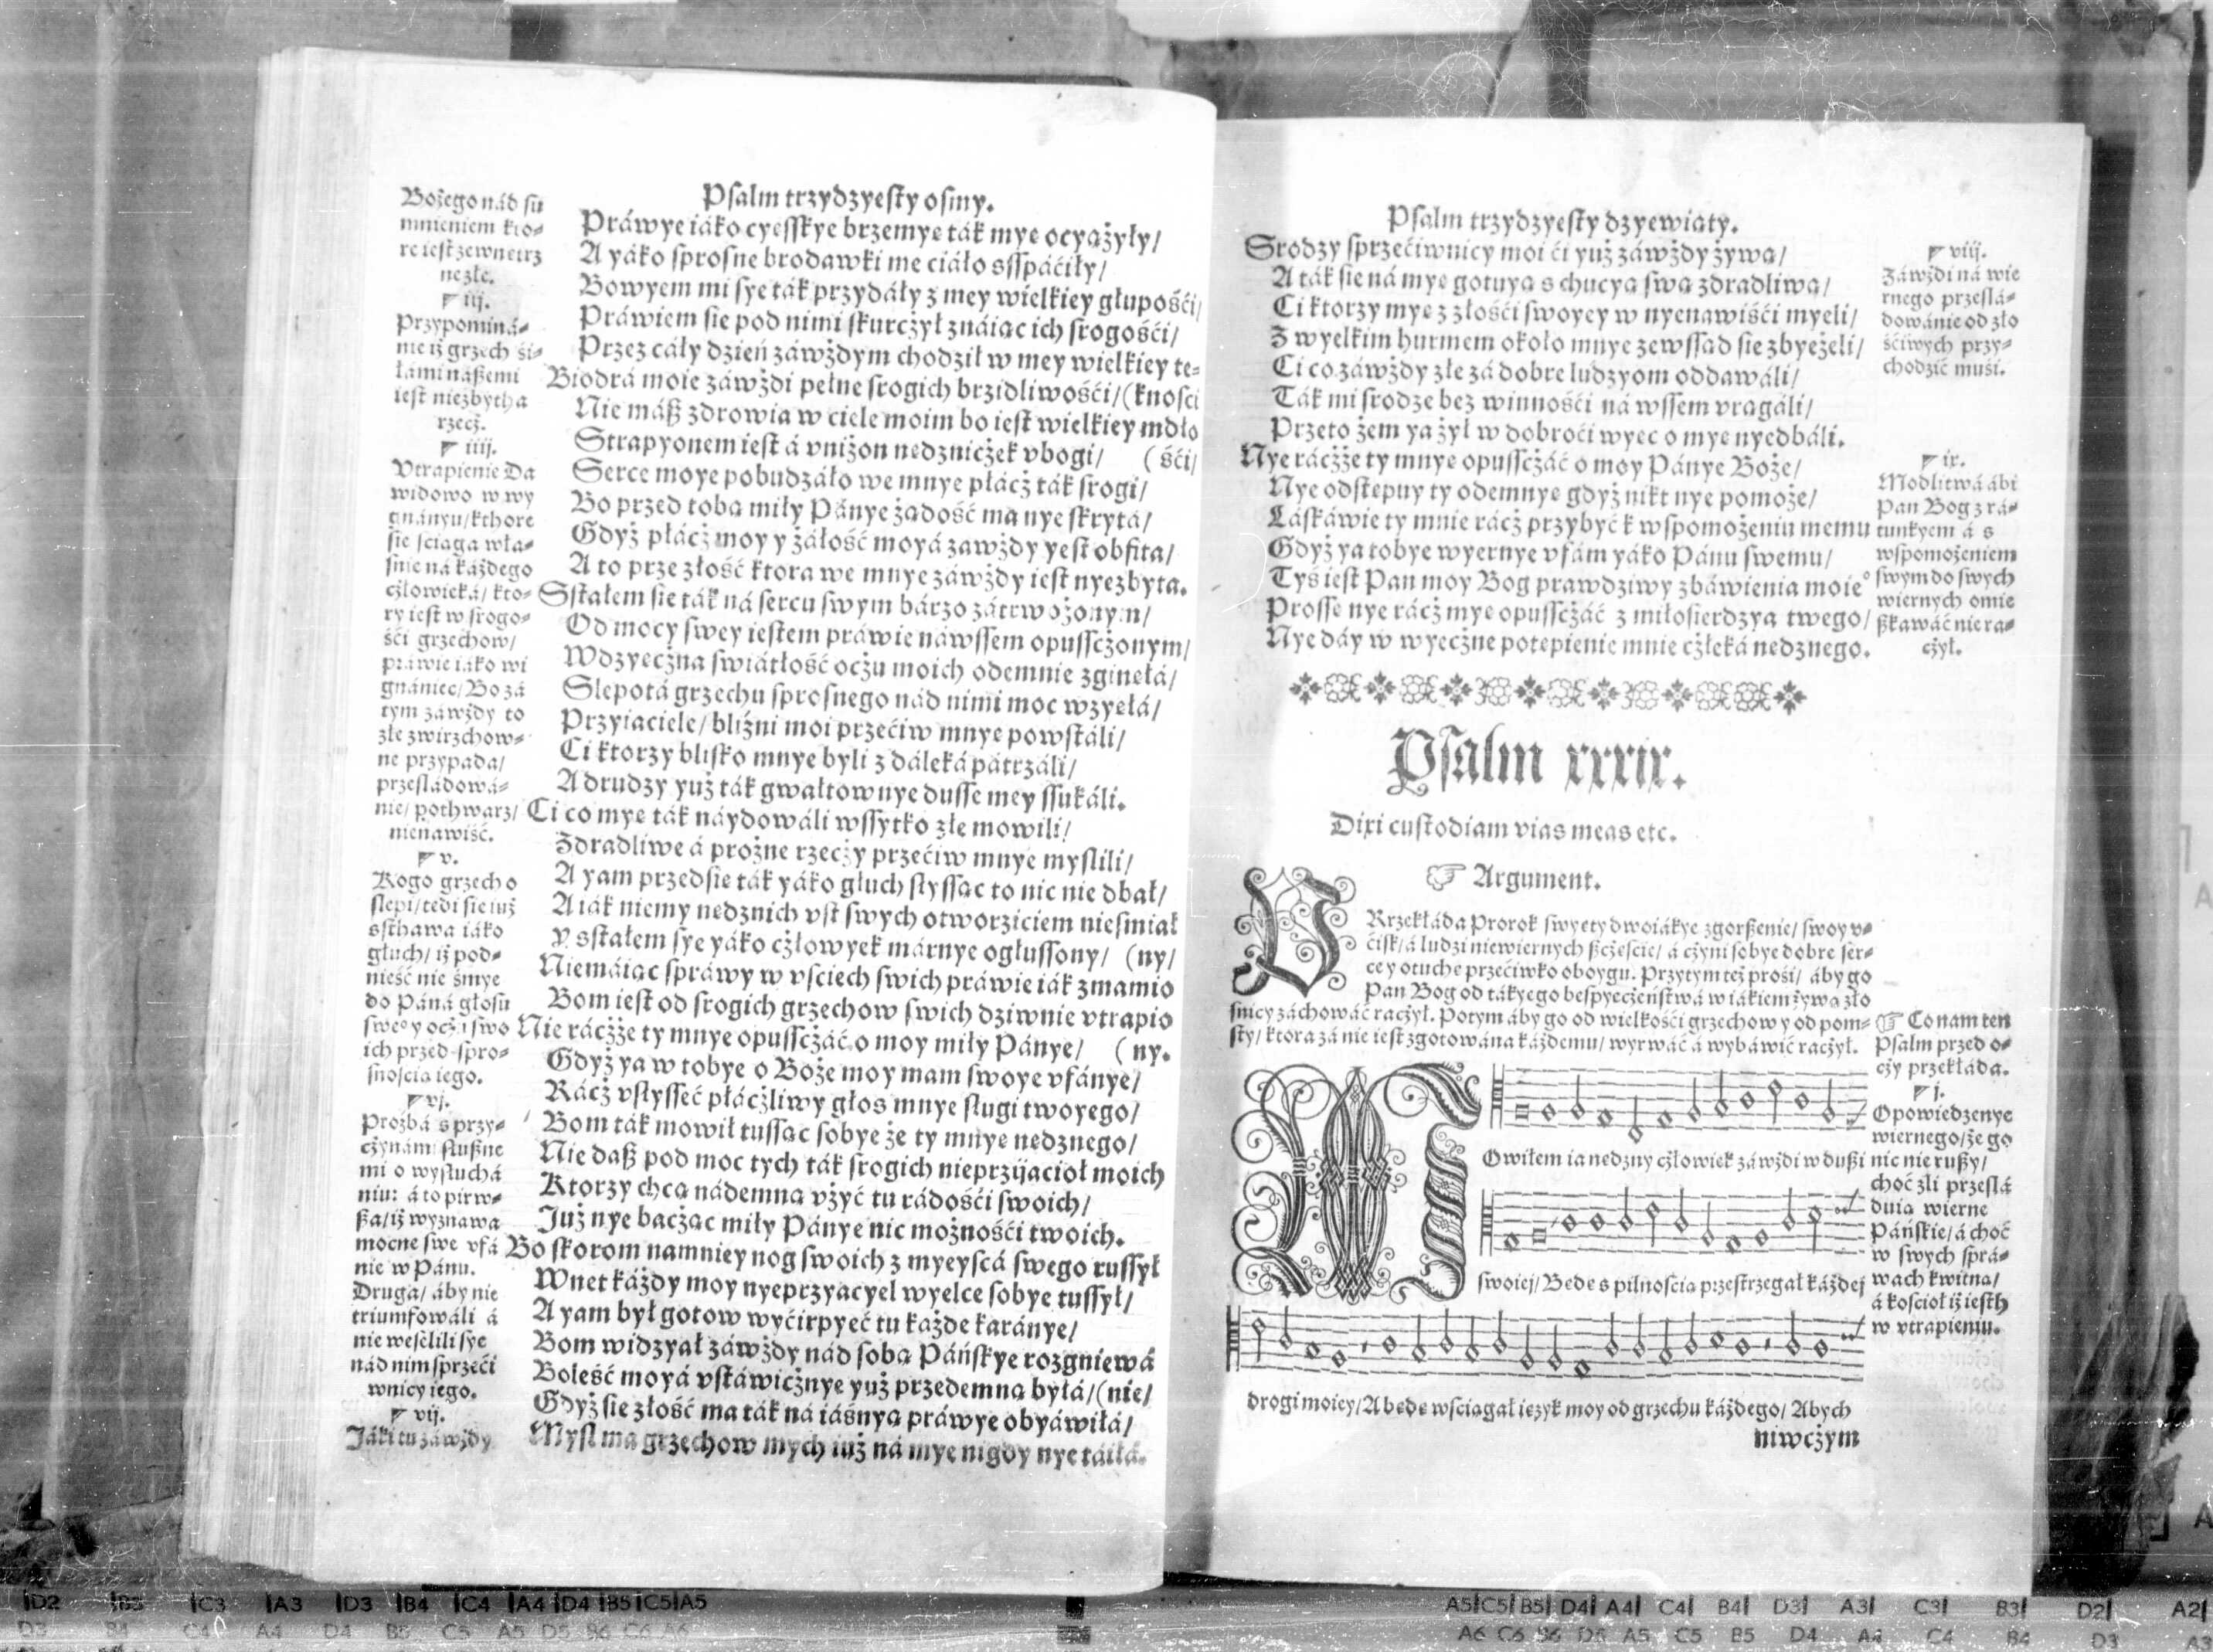 Psalm trzydzyesty osmy.
Práwye iáko cyesskye brzemye ták mye ocyążyły/
A yáko sprosne brodawki me ciáło sspáćiły/
Bowyem mi sye ták przydáły z mey wielkiey głupośći/
Práwiem sie pod nimi skurcżył znáiąc ich srogośći/
Przez cáły dzień záwżdym chodził w mey wielkiey te-
Biodrá moie záwżdi pełne srogich brzidliwośći/ (knosci
Nie máß zdrowia w ciele moim bo iest wielkiey mdło
Strapyonem iest á vniżon nedznicżek vbogi/ (śći/
Serce moye pobudzáło we mnye płácż ták srogi/
Bo przed tobą miły Pánye żądość ma nye skrytá/
Gdyż płácż moy y żáłość moyá záwżdy yest obfita/
A to prze złość ktora we mnye záwżdy iest nyezbyta.
Sstałem sie ták ná sercu swym bárzo zátrwożonym/
Od mocy swey iestem práwie náwssem opusscżonym/
Wdzyecżna świátłość ocżu moich odemnie zginełá/
Slepotá grzechu sprosnego nád nimi moc wzyełá/
Przyiaciele/ bliźni moi przećiw mnye powstáli/
Ci ktorzy blisko mnye byli z dáleká pátrzáli/
A drudzy yuż ták gwałtownye dusse mey ssukáli.
Ci co mye ták náydowáli wssytko złe mowili/
Zdradliwe á prożne rzecży przećiw mnye myslili/
A yam przedsie ták yáko głuch słyssąc to nic nie dbał/
A iák niemy nedznich vst swych otworziciem nieśmiał
Y sstałem sye yáko cżłowyek márnye ogłussony/ (ny/
Niemáiąc spráwy w vściech swich práwie iák zmamio
Bom iest od srogich grzechow swich dziwnie vtrapio
Nie rácżże ty mnye opusscżáć o moy miły Pánye/ (ny.
Gdyż ya w tobye o Boże moy mam swoye vfánye/
Rácż vsłysseć płácżliwy głos mnye sługi twoyego/
Bom ták mowił tussąc sobye że ty mnye nedznego/
Nie daß pod moc tych ták srogich nieprzijacioł moich
Ktorzy chcą nádemną vżyć tu rádośći swoich/
Już nye bacżąc miły Pánye nic możnośći twoich.
Bo skorom namniey nog swoich z myeyscá swego russył
Wnet káżdy moy nyeprzyacyel wyelce sobye tussył/
A yam był gotow wyćirpyeć tu każde karánye/
Bom widzyał záwżdy nád sobą Páńskye rozgniewá
Boleść moyá vstáwicżnye yuż przedemną byłá/ (nie/
Gdyż sie złość ma ták ná iáśnya práwye obyáwiłá/
Mysl ma grzechow mych iuż ná mye nigdy nye táiłá.
Bożego nád su
mnieniem kto-
re iest zewnetrz
ne złe.
iij.
Przypominá-
nie iż grzech si-
łami náßemi
iest niezbyta
rzecż.
iiij.
Vtrapienie Da
widowo w wy
gnányu/ kthore
sie sciąga wła-
snie ná káżdego
cżłowieká/ kto-
ry iest w srogo-
śći grzechow/
práwie iáko wi
gnániec/ Bo zá
tym záwżdy to
złe zwirzchow-
ne przypada/
prześládowá-
nie/ pothwarz/
nienawiść.
v.
Kogo grzech o
slepi/ tedi sie iuż
ssthawa iáko
głuch/ iż pod-
nieść nie śmye
do Páná głosu
swe° y ocżu swo
ich przed spro-
snoscią iego.
vj.
Proźbá s przy-
cżynámi słußne
mi o wysłuchá
niu: á to pirw-
ßa/ iż wyznawa
mocne swe vfá
nie w Pánu.
Druga/ áby nie
triumfowáli á
nie weselili sye
nád nim sprzeći
wnicy iego.
vij.
Jáki tu záwżdy
Psalm trzydzyesty dzyewiąty.
Srodzy sprzećiwnicy moi ći yuż záwżdy żywą/
A ták sie ná mye gotuyą s chucyą swą zdradliwą/
Ci ktorzy mye z złośći swoyey w nyenawiśći myeli/
Z wyelkim hurmem około mnye zewssąd sie zbyeżeli/
Ci co záwżdy złe zá dobre ludzyom oddawáli/
Ták mi srodze bez winnośći ná wssem vrągáli/
Przeto żem ya żył w dobroći wyec o mye nyedbáli.
Nye rácżże ty mnye opusscżáć o moy Pánye Boże/
Nye odstepuy ty odemnye gdyż nikt nye pomoże/
Láskáwie ty mnie rácż przybyć k wspomożeniu memu
Gdyż ya tobye wyernye vfám yáko Pánu swemu/
Tyś iest Pan moy Bog prawdziwy zbáwienia moie°
Prosse nye rácż mye opusscżáć z miłosierdzya twego/
Nye dáy w wyecżne potepienie mnie cżłeká nedznego.
viij.
Záwżdi ná wie
rnego przesłá-
dowánie od zło
śćiwych przy-
chodzić muśi.
ix.
Modlitwá ábi
Pan Bog z rá-
tunkyem á s
wspomożeniem
swym do swych
wiernych omie
ßkawáć nie ra-
cżył.
Psalm xxxix.
Dixi custodiam vias meas etc.
☞ Argument.
VRzekłáda Prorok swyety dwoiákye zgorßenie/ swoy v-
ćisk/ á ludzi niewiernych ßcżeście/ á cżyni sobye dobre ser-
ce y otuche przećiwko oboygu. Przytym też prosi/ áby go
Pan Bog od tákyego bespyecżeństwá w iákiem żywą zło
śnicy záchowáć racżył. Potym áby go od wielkośći grzechow y od pom-
sty/ ktora zá nie iest zgotowána káżdemu/ wyrwáć á wybáwić racżył.
☞ Co nam ten
Psalm przed o-
cży przekłáda.
j.
Opowiedzenye
wiernego/ że go
nic nie rußy/
choć źli przesłá
duią wierne
Páńskie/ á choć
w swych sprá-
wach kwitną/
á kościoł iż iesth
w vtrapieniu.
MOwiłem ia nedzny cżłowiek záwżdi w dußi
swoiej/ Bede s pilnością przestrzegał káżdej
drogi moiey/ A bede wściągał iezyk moy od grzechu káżdego/ Abych
niwcżym
D2 B3 C3 A3 D3 B4 C4 A4 D4 B5 C5 A5
A5 C5 B5 D4 A4 C4 B4 D3 A3 C3 B3 D2 A2